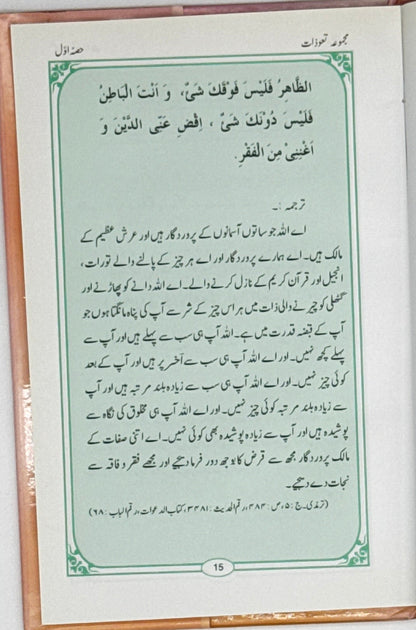 مجموعہ تعوذات
حصہ اوّل
الظَّاهِرُ فَلَيْسَ فَوْقَكَ شَیْءٌ، وَ اَنْتَ الْبَاطِنُ
فَلَيْسَ دُوْنَكَ شَیْءٌ ، اِقْضِ عَنِّی الدَّيْنَ وَ
اَغْنِنِیْ مِنَ الْفَقْرِ.
ترجمہ :۔
اے اللہ جو ساتوں آسمانوں کے پروردگار ہیں اور عرش عظیم کے
مالک ہیں۔ اے ہمارے پروردگار اور اے ہر چیز کے پالنے والے تورات،
انجیل اور قرآن کریم کے نازل کرنے والے۔ اے اللہ دانے کو پھاڑنے اور
گٹھلی کو چیرنے والی ذات میں ہر اس چیز کے شر سے آپ کی پناہ مانگتا ہوں جو
آپ کے قبضہ قدرت میں ہے۔ اللہ آپ ہی سب سے پہلے ہیں اور آپ سے
پہلے کچھ نہیں۔ اور اے اللہ آپ ہی سب سے آخر پر ہیں اور آپ کے بعد
کوئی چیز نہیں۔ اور اے اللہ آپ ہی سب سے زیادہ بلند مرتبہ ہیں اور آپ
سے زیادہ بلند مرتبہ کوئی چیز نہیں۔ اور اے اللہ آپ ہی مخلوق کی نگاہ سے
پوشیدہ ہیں اور آپ سے زیادہ پوشیدہ بھی کوئی نہیں۔ اے اتنی صفات کے
مالک پروردگار مجھ سے قرض کا بوجھ دور فرما دیجیے اور مجھے فقر و فاقہ سے
نجات دے دیجیے۔
(ترمذی۔ ج : ۵، ص : ۴۸۴، رقم الحدیث : ۳۴۸۱، کتاب الدعوات، رقم الباب : ۶۸)
15